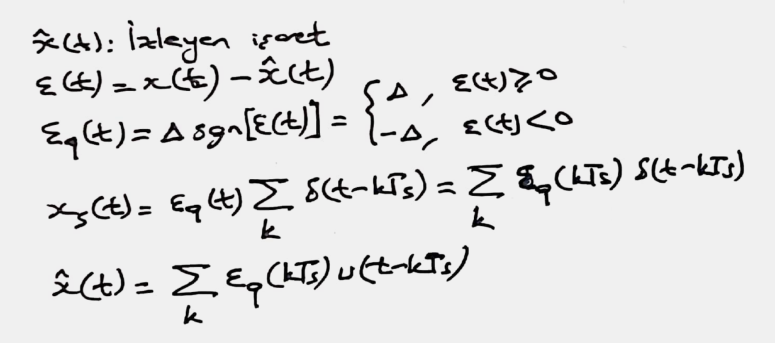 x̂(t): İzleyen işaret
ε(t) = x(t) − x̂(t)
ε_q(t) = Δ sgn[ε(t)] = { Δ, ε(t) ≥ 0
−Δ, ε(t) < 0
x_s(t) = ε_q(t) ∑_k δ(t−kT_s) = ∑_k ε_q(kT_s) δ(t−kT_s)
x̂(t) = ∑_k ε_q(kT_s) u(t−kT_s)